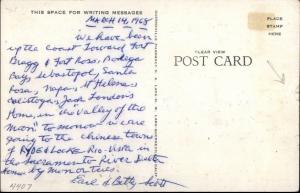 THIS SPACE FOR WRITING MESSAGES
March 14, 1968
We have been
up the coast toward Fort
Bragg & Fort Ross, Bodega
Bay, Sebastopol, Santa
Rosa, Napa, St Helena,
Calistoga, Jack London's
Home, in the Valley of the
Moon to monow we are
going to the chinese towns
of RYDE & LOCKE Rio-Vista in
the Sacramento River Delta
Home by mon or tues.
Earl & Betty Scott
4407
"CLEAR VIEW
POST CARD
PLACE
STAMP
HERE